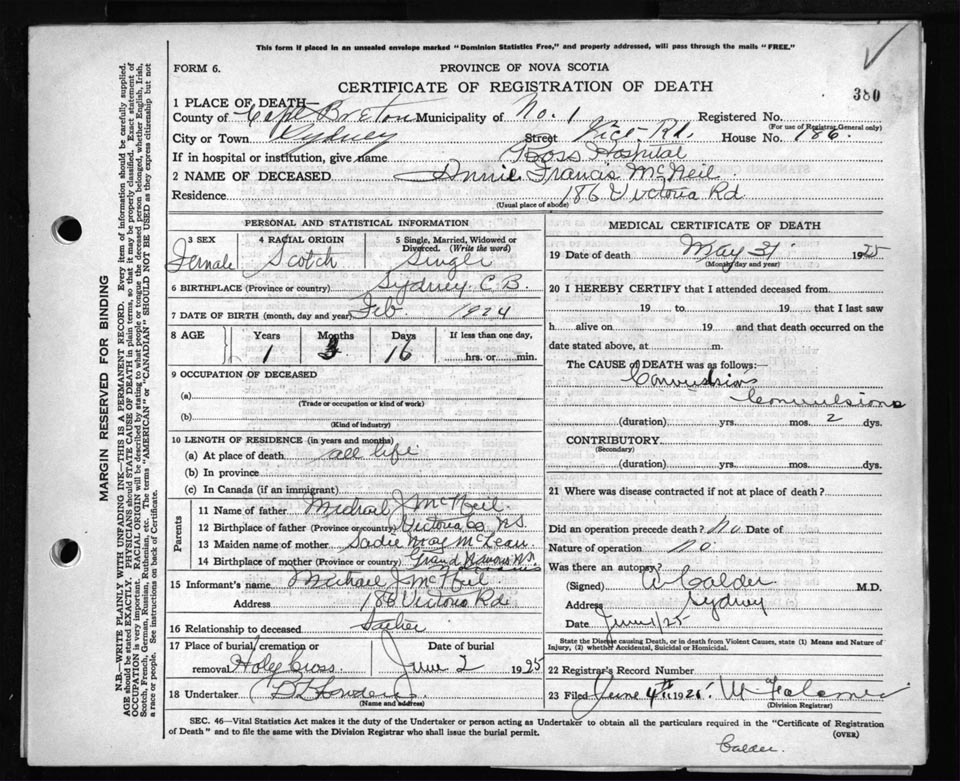 This form if placed in an unsealed envelope marked "Dominion Statistics Free," and properly addressed, will pass through the mails "FREE."
FORM 6.
PROVINCE OF NOVA SCOTIA
CERTIFICATE OF REGISTRATION OF DEATH
380
1 PLACE OF DEATH—
County of Cape Breton Municipality of No. 1 Registered No.
(For use of Registrar General only)
City or Town Sydney Street Vico Rd. House No. 186.
If in hospital or institution, give name Ross Hospital
2 NAME OF DECEASED Annie Francis McNeil
Residence 186 Victoria Rd
(Usual place of abode)
PERSONAL AND STATISTICAL INFORMATION
3 SEX
Female
4 RACIAL ORIGIN
Scotch
5 Single, Married, Widowed or Divorced. (Write the word)
Singel
6 BIRTHPLACE (Province or country) Sydney C.B.
7 DATE OF BIRTH (month, day and year) Feb 1924
8 AGE
Years Months Days If less than one day,
1 3 16 hrs. or min.
9 OCCUPATION OF DECEASED
(a)
(Trade or occupation or kind of work)
(b)
(Kind of industry)
10 LENGTH OF RESIDENCE (in years and months)
(a) At place of death all life
(b) In province
(c) In Canada (if an immigrant)
Parents
11 Name of father Michael J McNeil
12 Birthplace of father (Province or country) Victoria Co N.S.
13 Maiden name of mother Sadie May McLean
14 Birthplace of mother (Province or country) Grand Narrows N.S.
15 Informant's name Michael J McNeil
Address 186 Victoria Rd
16 Relationship to deceased Father
17 Place of burial, cremation or removal Holey Cross
Date of burial
June 2 1925
18 Undertaker
(Name and address)
MEDICAL CERTIFICATE OF DEATH
19 Date of death May 31 1925
(Month, day and year)
20 I HEREBY CERTIFY that I attended deceased from
19 to 19 that I last saw
h alive on 19 and that death occurred on the
date stated above, at m.
The CAUSE OF DEATH was as follows:
Convulsions
Convulsions
(duration) yrs. mos. 2 dys.
CONTRIBUTORY.
(Secondary)
(duration) yrs. mos. dys.
21 Where was disease contracted if not at place of death?
Did an operation precede death? no Date of
Nature of operation no
Was there an autopsy?
(Signed) W Calder M.D.
Address Sydney
Date June 1/25
State the Disease causing Death, or in death from Violent Causes, state (1) Means and Nature of Injury, (2) whether Accidental, Suicidal or Homicidal.
22 Registrar's Record Number
23 Filed June 4th 1925.
(Division Registrar)
SEC. 46—Vital Statistics Act makes it the duty of the Undertaker or person acting as Undertaker to obtain all the particulars required in the "Certificate of Registration
of Death" and to file the same with the Division Registrar who shall issue the burial permit.
(OVER)
Calder.
MARGIN RESERVED FOR BINDING
N.B.—WRITE PLAINLY WITH UNFADING INK—THIS IS A PERMANENT RECORD. Every item of information should be carefully supplied.
AGE should be stated EXACTLY. PHYSICIANS should STATE CAUSE OF DEATH in plain terms, so that it may be properly classified. Exact statement of
OCCUPATION is very important. RACIAL ORIGIN will be described by stating to what people or tongue the deceased person belonged, whether English, Irish,
Scotch, French, German, Russian, Ruthenian, etc. The terms "AMERICAN" or "CANADIAN" SHOULD NOT BE USED as they express citizenship but not
a race or people. See instructions on back of Certificate.